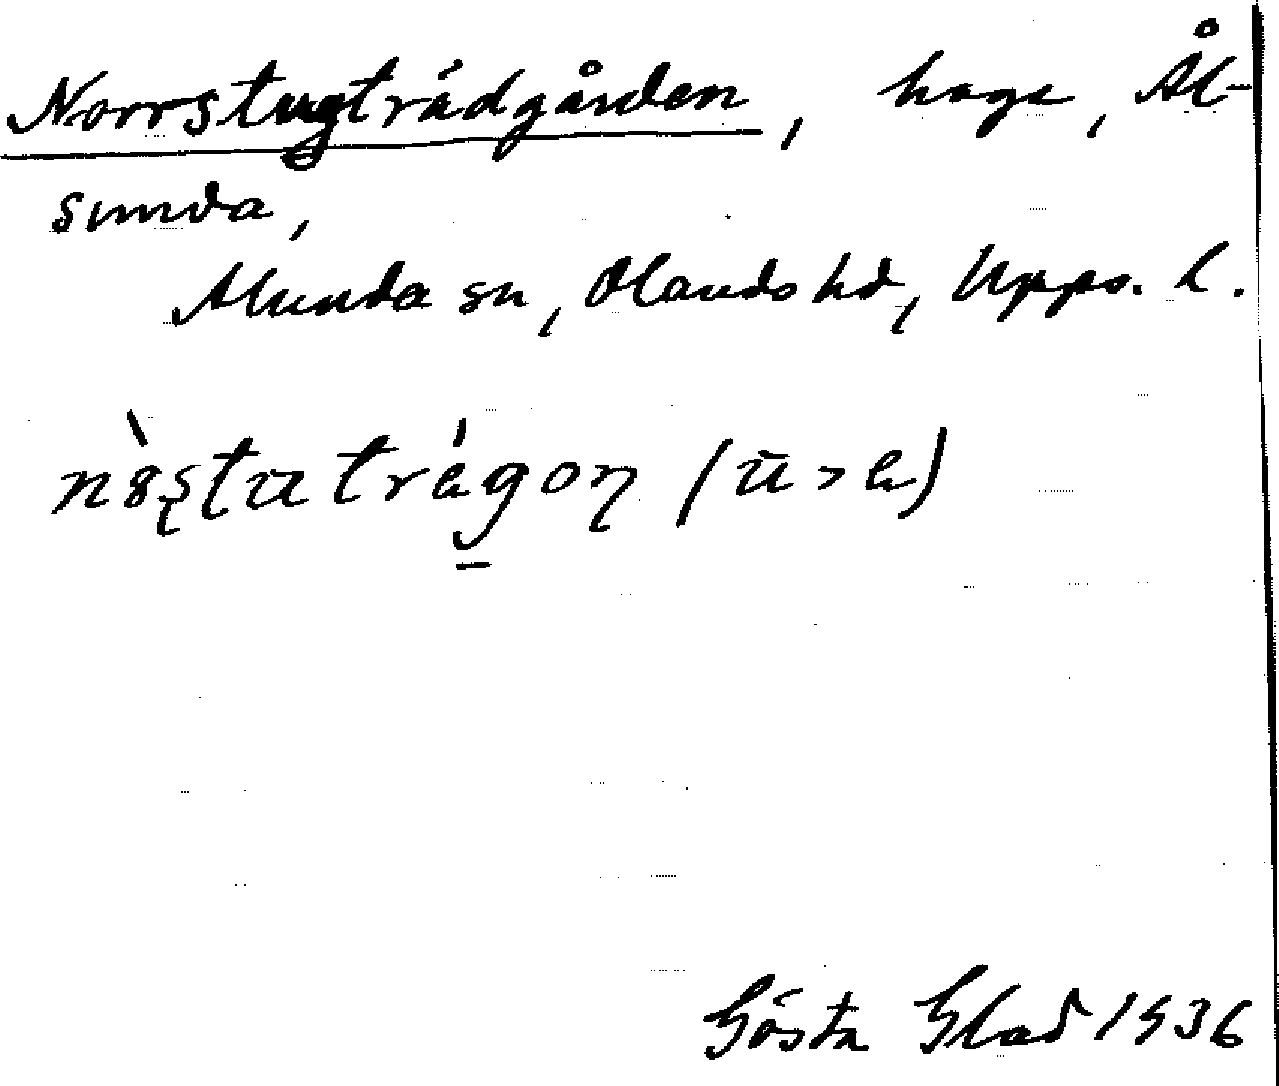 Norrstugträdgården, hage, Ål-
sunda,
Alunda sn, Olands hd, Upps. l.
Gösta Glad 1936